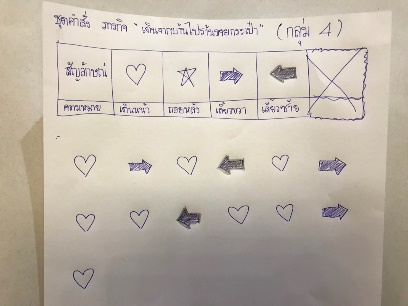 ชุดคำสั่ง ภารกิจ "เดินจากบ้านไปร้านขายกระเป๋า" (กลุ่ม 4)
สัญลักษณ์
ความหมาย เดินหน้า ถอยหลัง เลี้ยวขวา เลี้ยวซ้าย